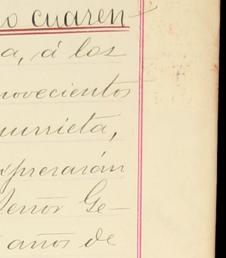 o cuaren
a, á los
novecientos
urrieta,
xpresarán
Señor Ge-
años de